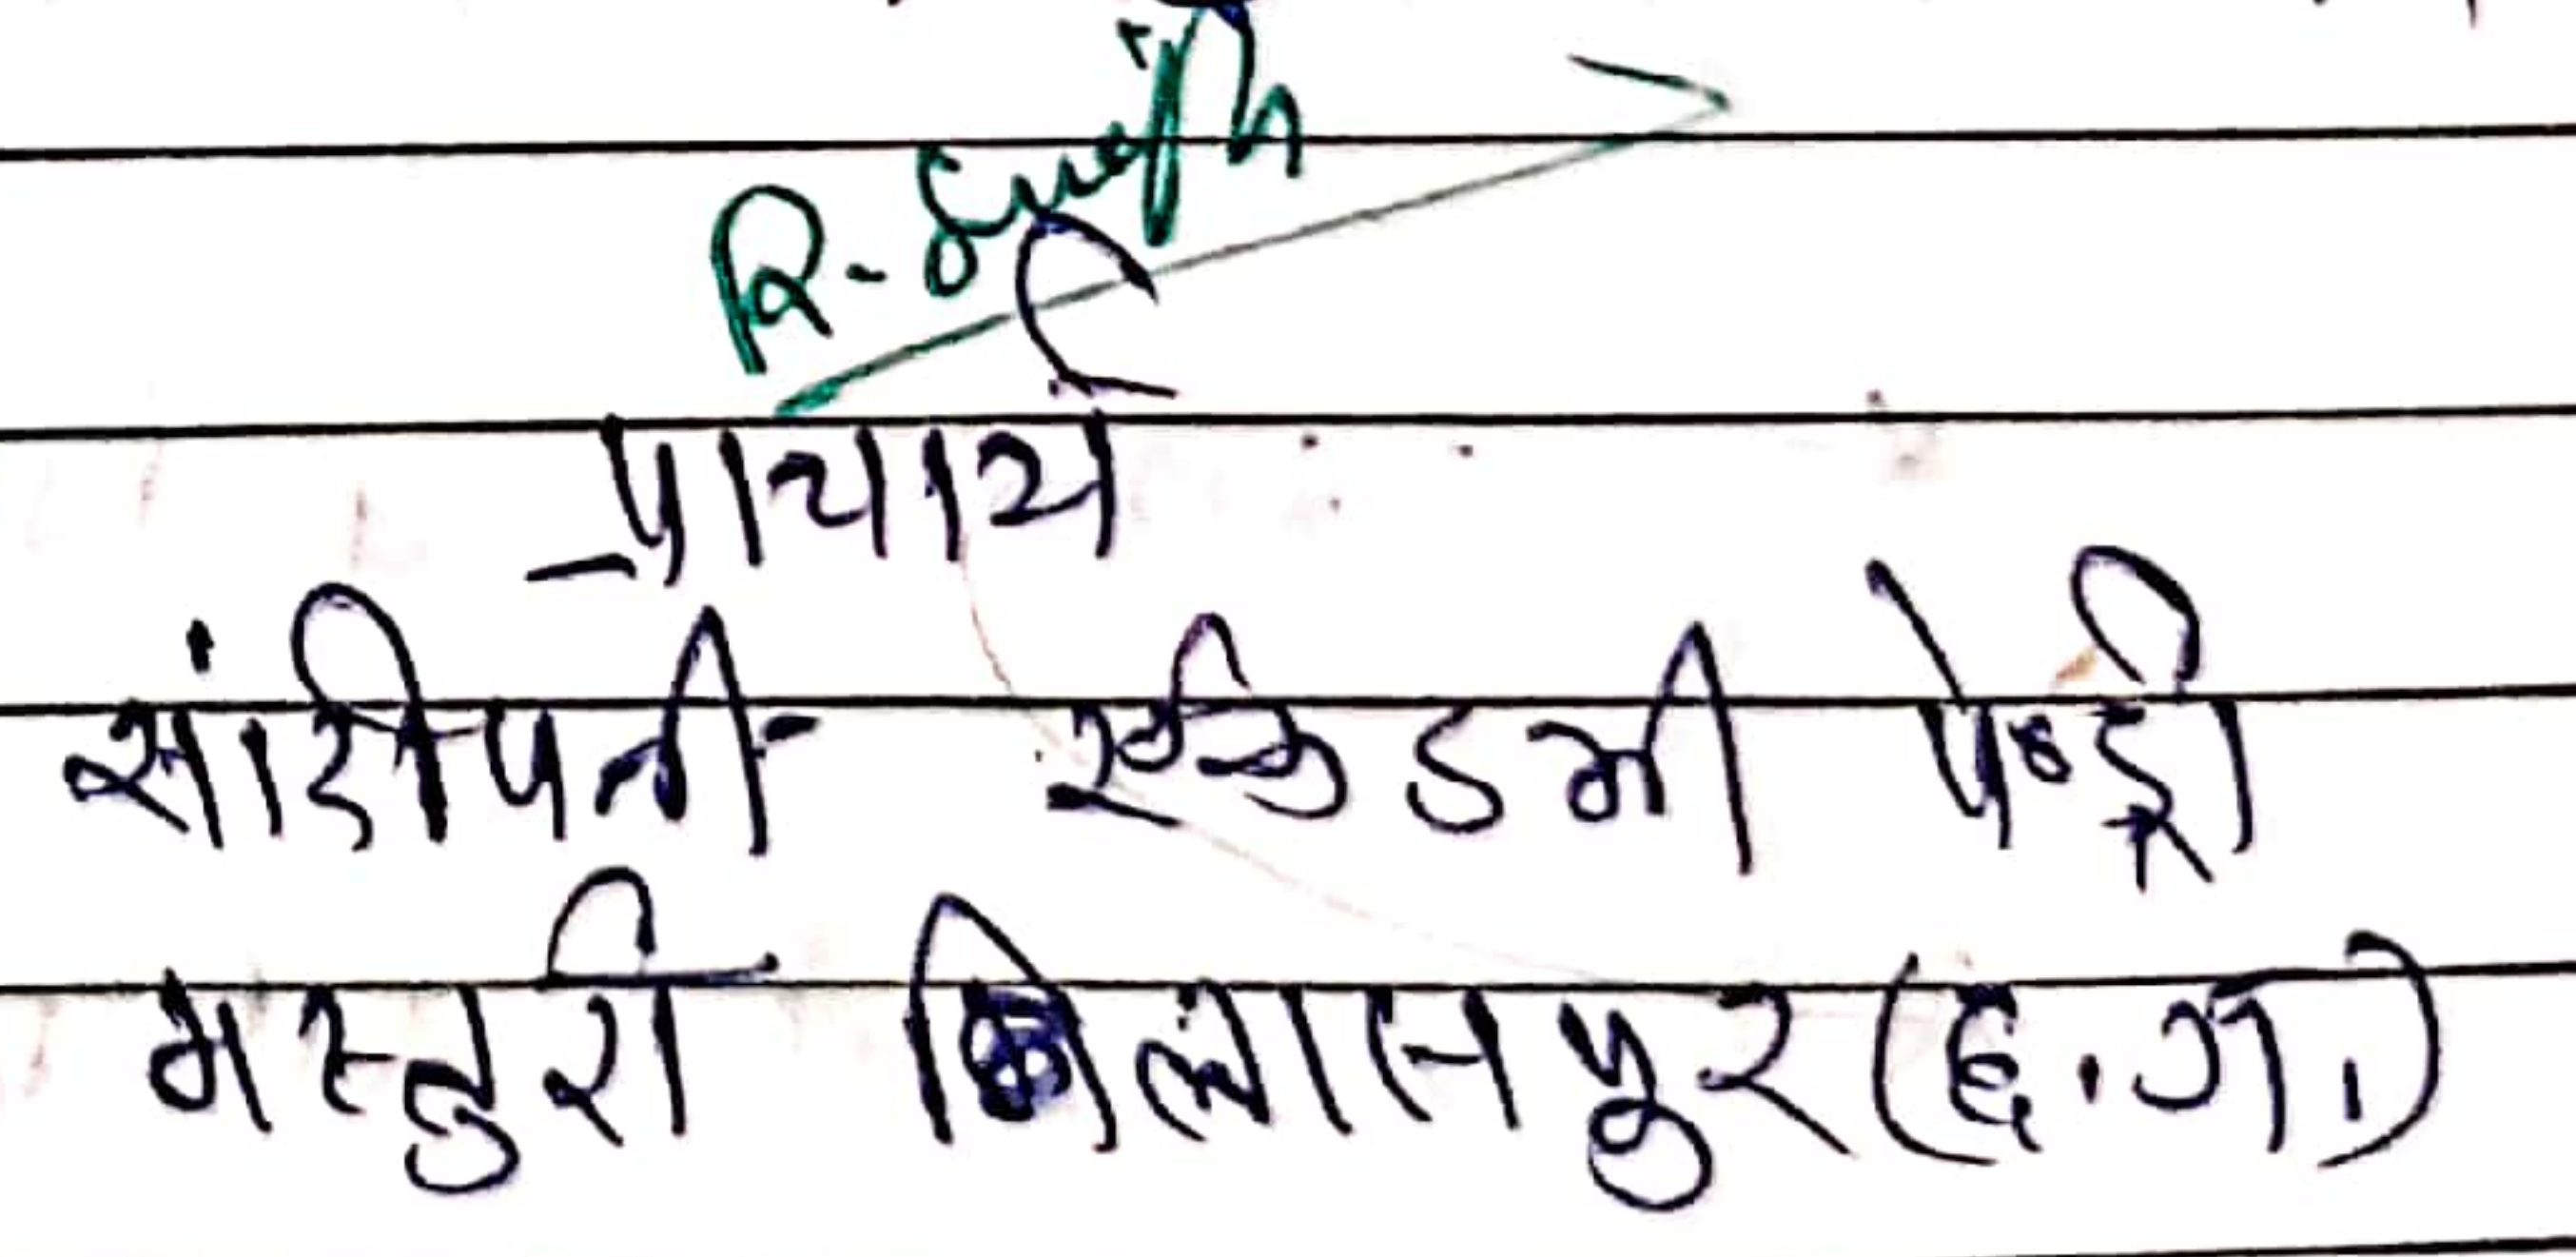 R. Singh
प्राचार्य
सांदीपनी एकेडमी पेण्ड्री
मस्तुरी बिलासपुर (छ.ग.)